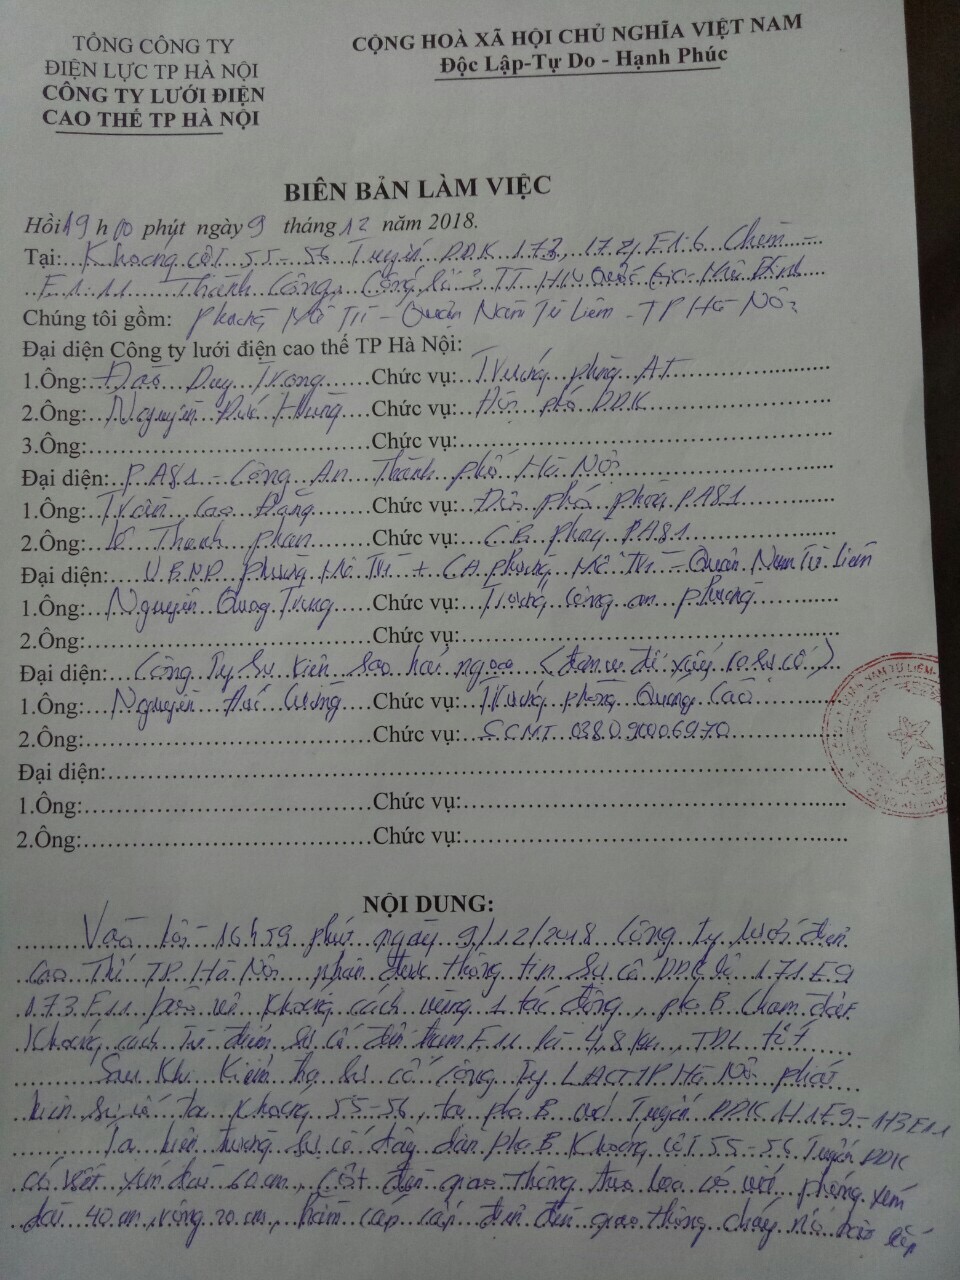 TỔNG CÔNG TY
ĐIỆN LỰC TP HÀ NỘI
CÔNG TY LƯỚI ĐIỆN
CAO THẾ TP HÀ NỘI
CỘNG HOÀ XÃ HỘI CHỦ NGHĨA VIỆT NAM
Độc Lập-Tự Do - Hạnh Phúc
BIÊN BẢN LÀM VIỆC
Hồi 19 h 00 phút ngày 9 tháng 12 năm 2018.
Tại: Khoảng cột 55-56 Tuyến DDK 173, 174 E1.6 Chèm -
E1.11 Thành Công, Cổng số 2 TT HN Quốc gia - Mễ Đình
Chúng tôi gồm: Phường Mễ Trì - Quận Nam Từ Liêm - TP Hà Nội
Đại diện Công ty lưới điện cao thế TP Hà Nội:
1.Ông: Đào Duy Trọng Chức vụ: Trưởng phòng AT
2.Ông: Nguyễn Đức Hùng Chức vụ: Đội phó DDK
3.Ông: Chức vụ:
Đại diện: PA81 - Công An Thành phố Hà Nội
1.Ông: Trần Cao Đặng Chức vụ: Đội phó phòng PA81
2.Ông: Thanh Chức vụ: CB phòng PA81
Đại diện: UBND phường Mễ Trì + CA phường Mễ Trì - Quận Nam Từ Liêm
1.Ông: Nguyễn Quang Trung Chức vụ: Trưởng công an phường
2.Ông: Chức vụ:
Đại diện: Công Ty Sự Kiện Sao hải ngoại (đơn vị để xảy ra sự cố)
1.Ông: Nguyễn Đức Cường Chức vụ: Trưởng phòng Quảng Cáo
2.Ông: Chức vụ: SCMT 038090006970
Đại diện:
1.Ông: Chức vụ:
2.Ông: Chức vụ:
NỘI DUNG:
Vào hồi 16h59 phút ngày 9/12/2018 Công ty lưới điện
Cao Thế TP Hà Nội nhận được thông tin sự cố DDK lộ 171 E9
173 E11 bảo vệ khoảng cách vùng 1 tác động, pha B chạm đất
Khoảng cách từ điểm sự cố đến trạm E11 là 4,8 km, TDL tốt
Sau khi kiểm tra sự cố Công ty LĐCT TP Hà Nội phát
hiện sự cố tại khoảng 55-56, tại pha B cột Tuyến DDK 171E9-173E11
Tại hiện trường sự cố dây dẫn pha B khoảng cột 55-56 Tuyến DDK
có vết xém dài 60cm, Cột đèn giao thông
dài 40cm, rộng 20cm, cáp cấp điện đèn giao thông cháy nổ